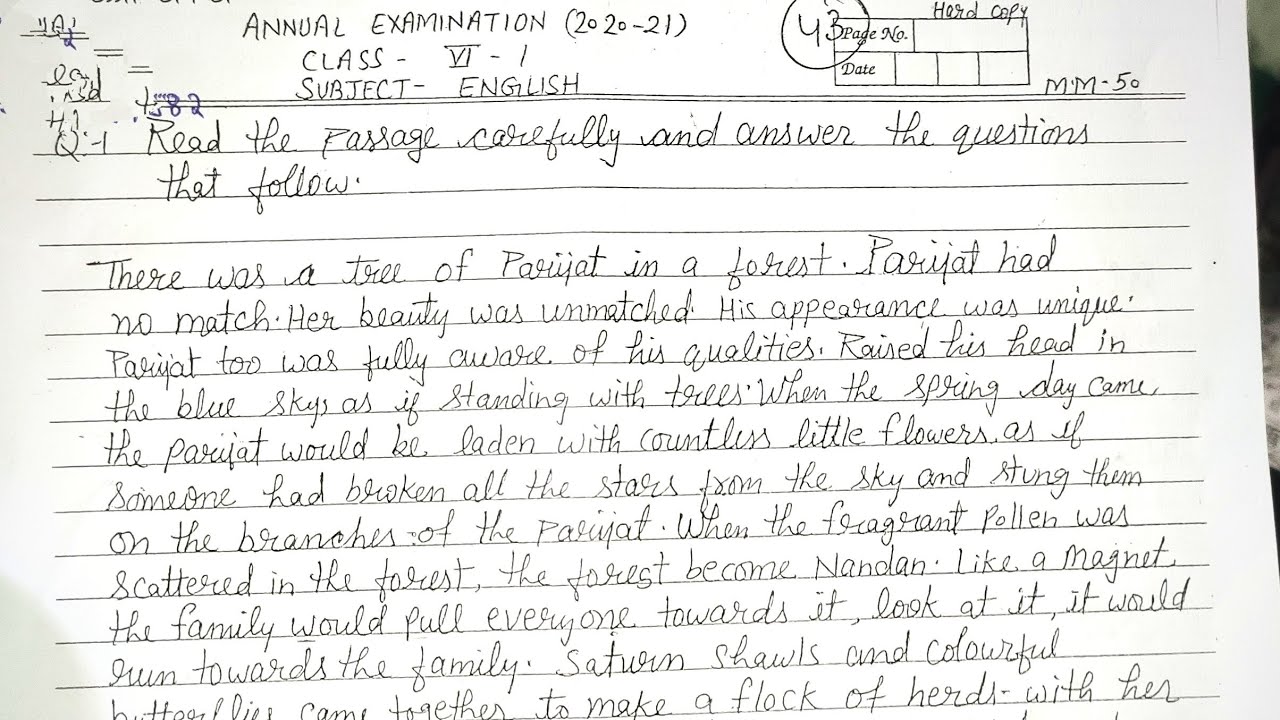 ANNUAL EXAMINATION (2020-21)
Hard copy
43
Page No.
CLASS - VI - 1
Date
SUBJECT - ENGLISH
M.M - 50
582
Q.1 Read the Passage carefully and answer the questions
that follow.
There was a tree of Parijat in a forest. Parijat had
no match. Her beauty was unmatched. His appearance was unique.
Parijat too was fully aware of his qualities. Raised his head in
the blue sky, as if standing with trees. When the spring day came,
the parijat would be laden with countless little flowers, as if
someone had broken all the stars from the sky and stung them
on the branches of the Parijat. When the fragrant Pollen was
scattered in the forest, the forest become Nandan. Like a magnet,
the family would pull everyone towards it, look at it, it would
run towards the family. Saturn shawls and colourful
butterflies came together to make a flock of herds - with her